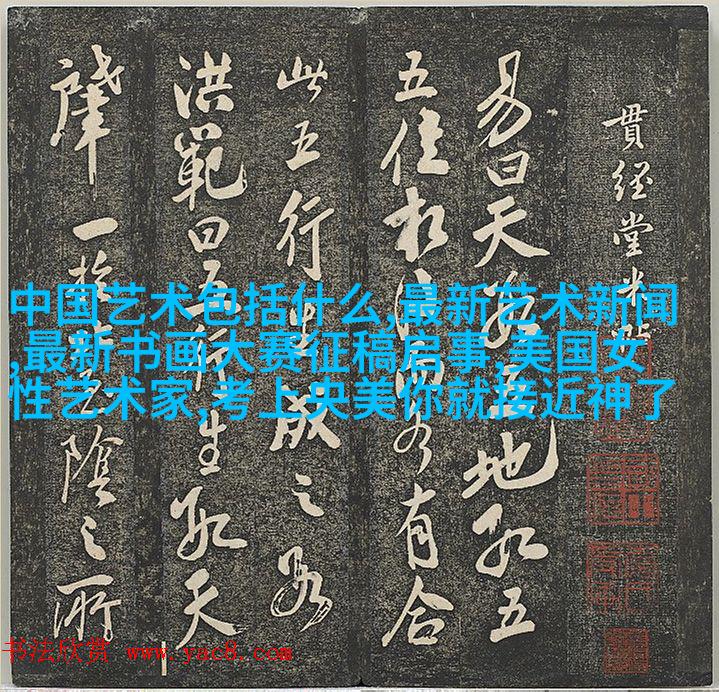 貫經堂米帖
易曰天數五地數五
五位相得而各有合
此五行生成之數
洪範曰五行生數天
肇一於陰之所
中国艺术包括什么,最新艺术新闻
,最新书画大赛征稿启事,美国女
性艺术家,考上央美你就接近神了
书法欣赏 www.yac8.com